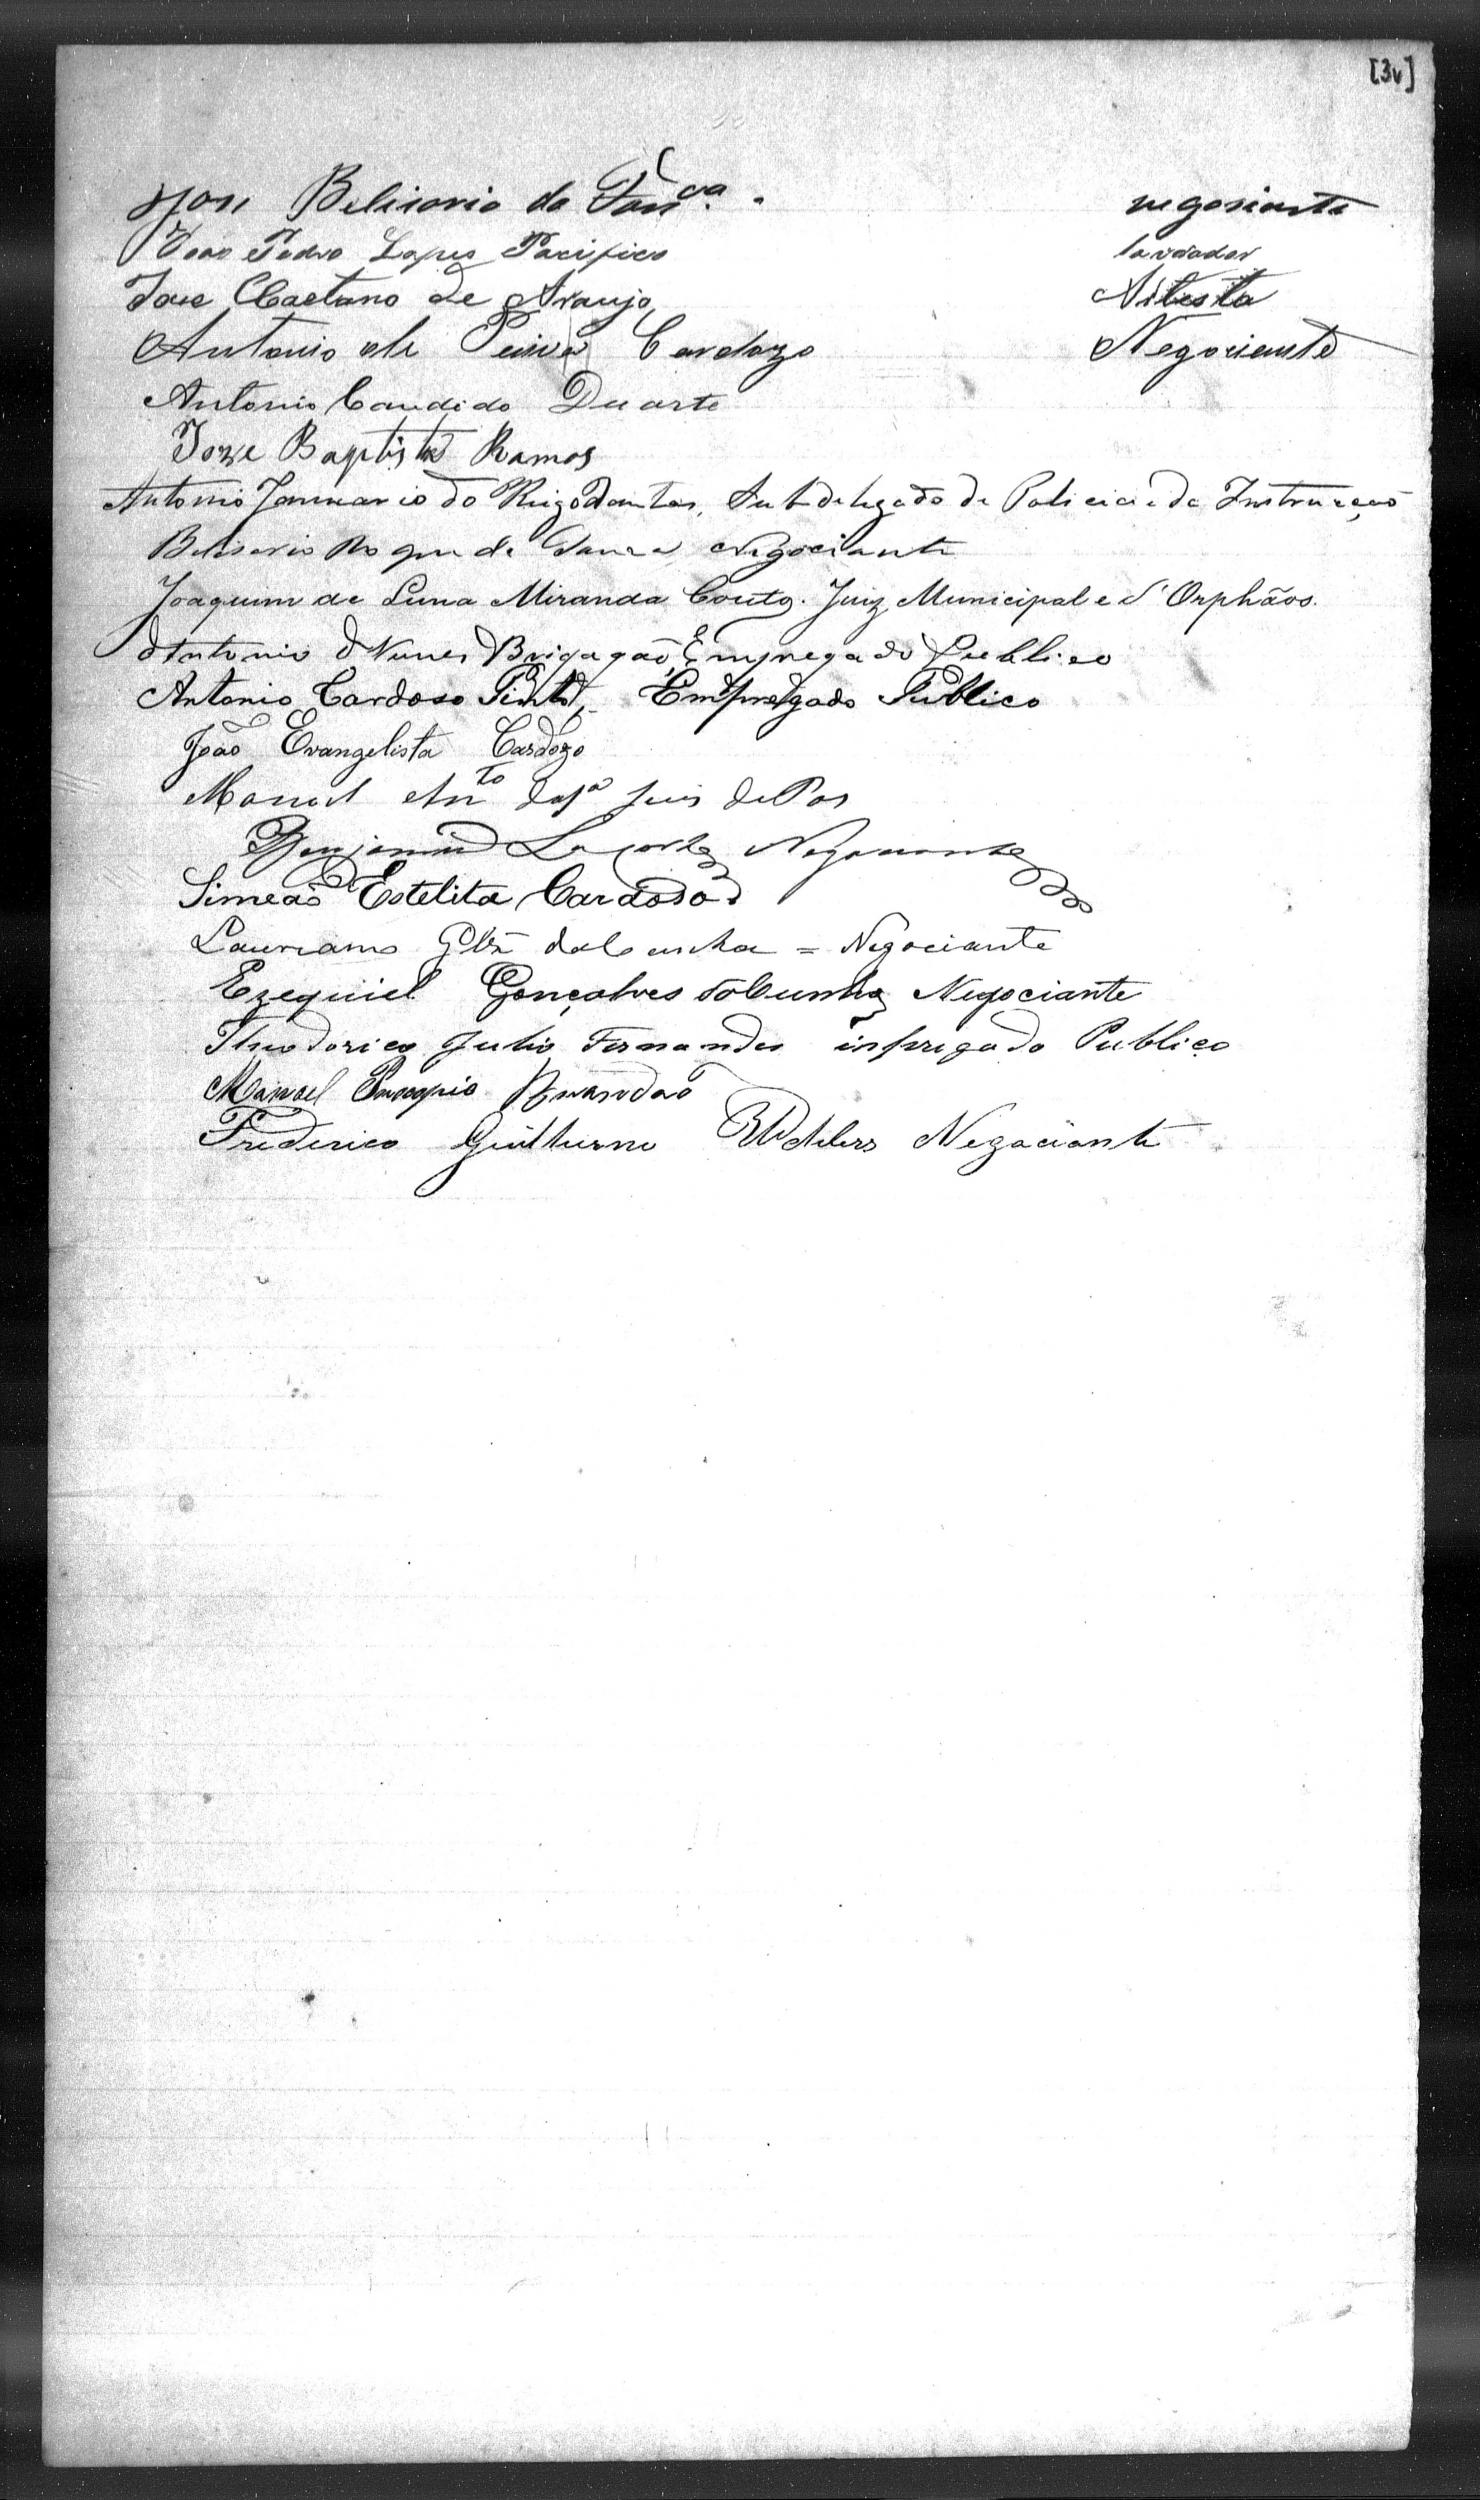 [3v]
José Belisario da negosiante
João Pedro Lopes Pacifico lavrador
Jose Caetano de Araujo Artista
Antonio de Paiva Cardozo Negociante
Antonio Candido Duarte
Joze Baptista Ramos
Antonio Januario do Rego Dantas, Subdelegado de Policia e da Instrucção
Belisario Roque de Negociante
Joaquim de Luna Miranda Couto. Juiz Municipal e d'Orphãos.
Antonio Nunes Brigagão, Empregado Publico
Antonio Cardoso Pinto, Empregado Publico
João Evangelista Cardozo
Manoel Anto Juis de Pas
Benjamim Negociante
Simeão Estelita Cardoso
Lauriano Glz da Cunha = Negociante
Ezequiel Gonçalves da Cunha Negociante
Theodorico Julio Fernandes inpregado Publico
Manoel Procopio Brandão
Frederico Guilherme Negociante